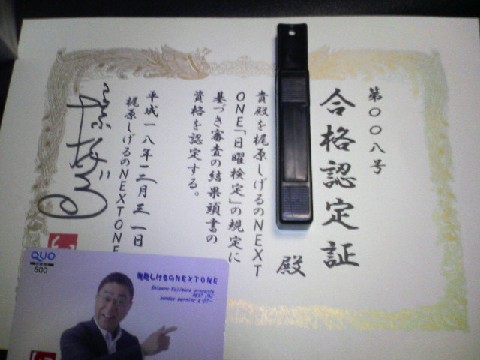 第〇〇八号
合格認定証
殿
貴殿を梶原しげるのNEXT
ONE「日曜検定」の規定に
基づき審査の結果頭書の
資格を認定する。
平成一八年三月三一日
梶原しげるのNEXTONE
QUO
500
梶原しげるのNEXTONE